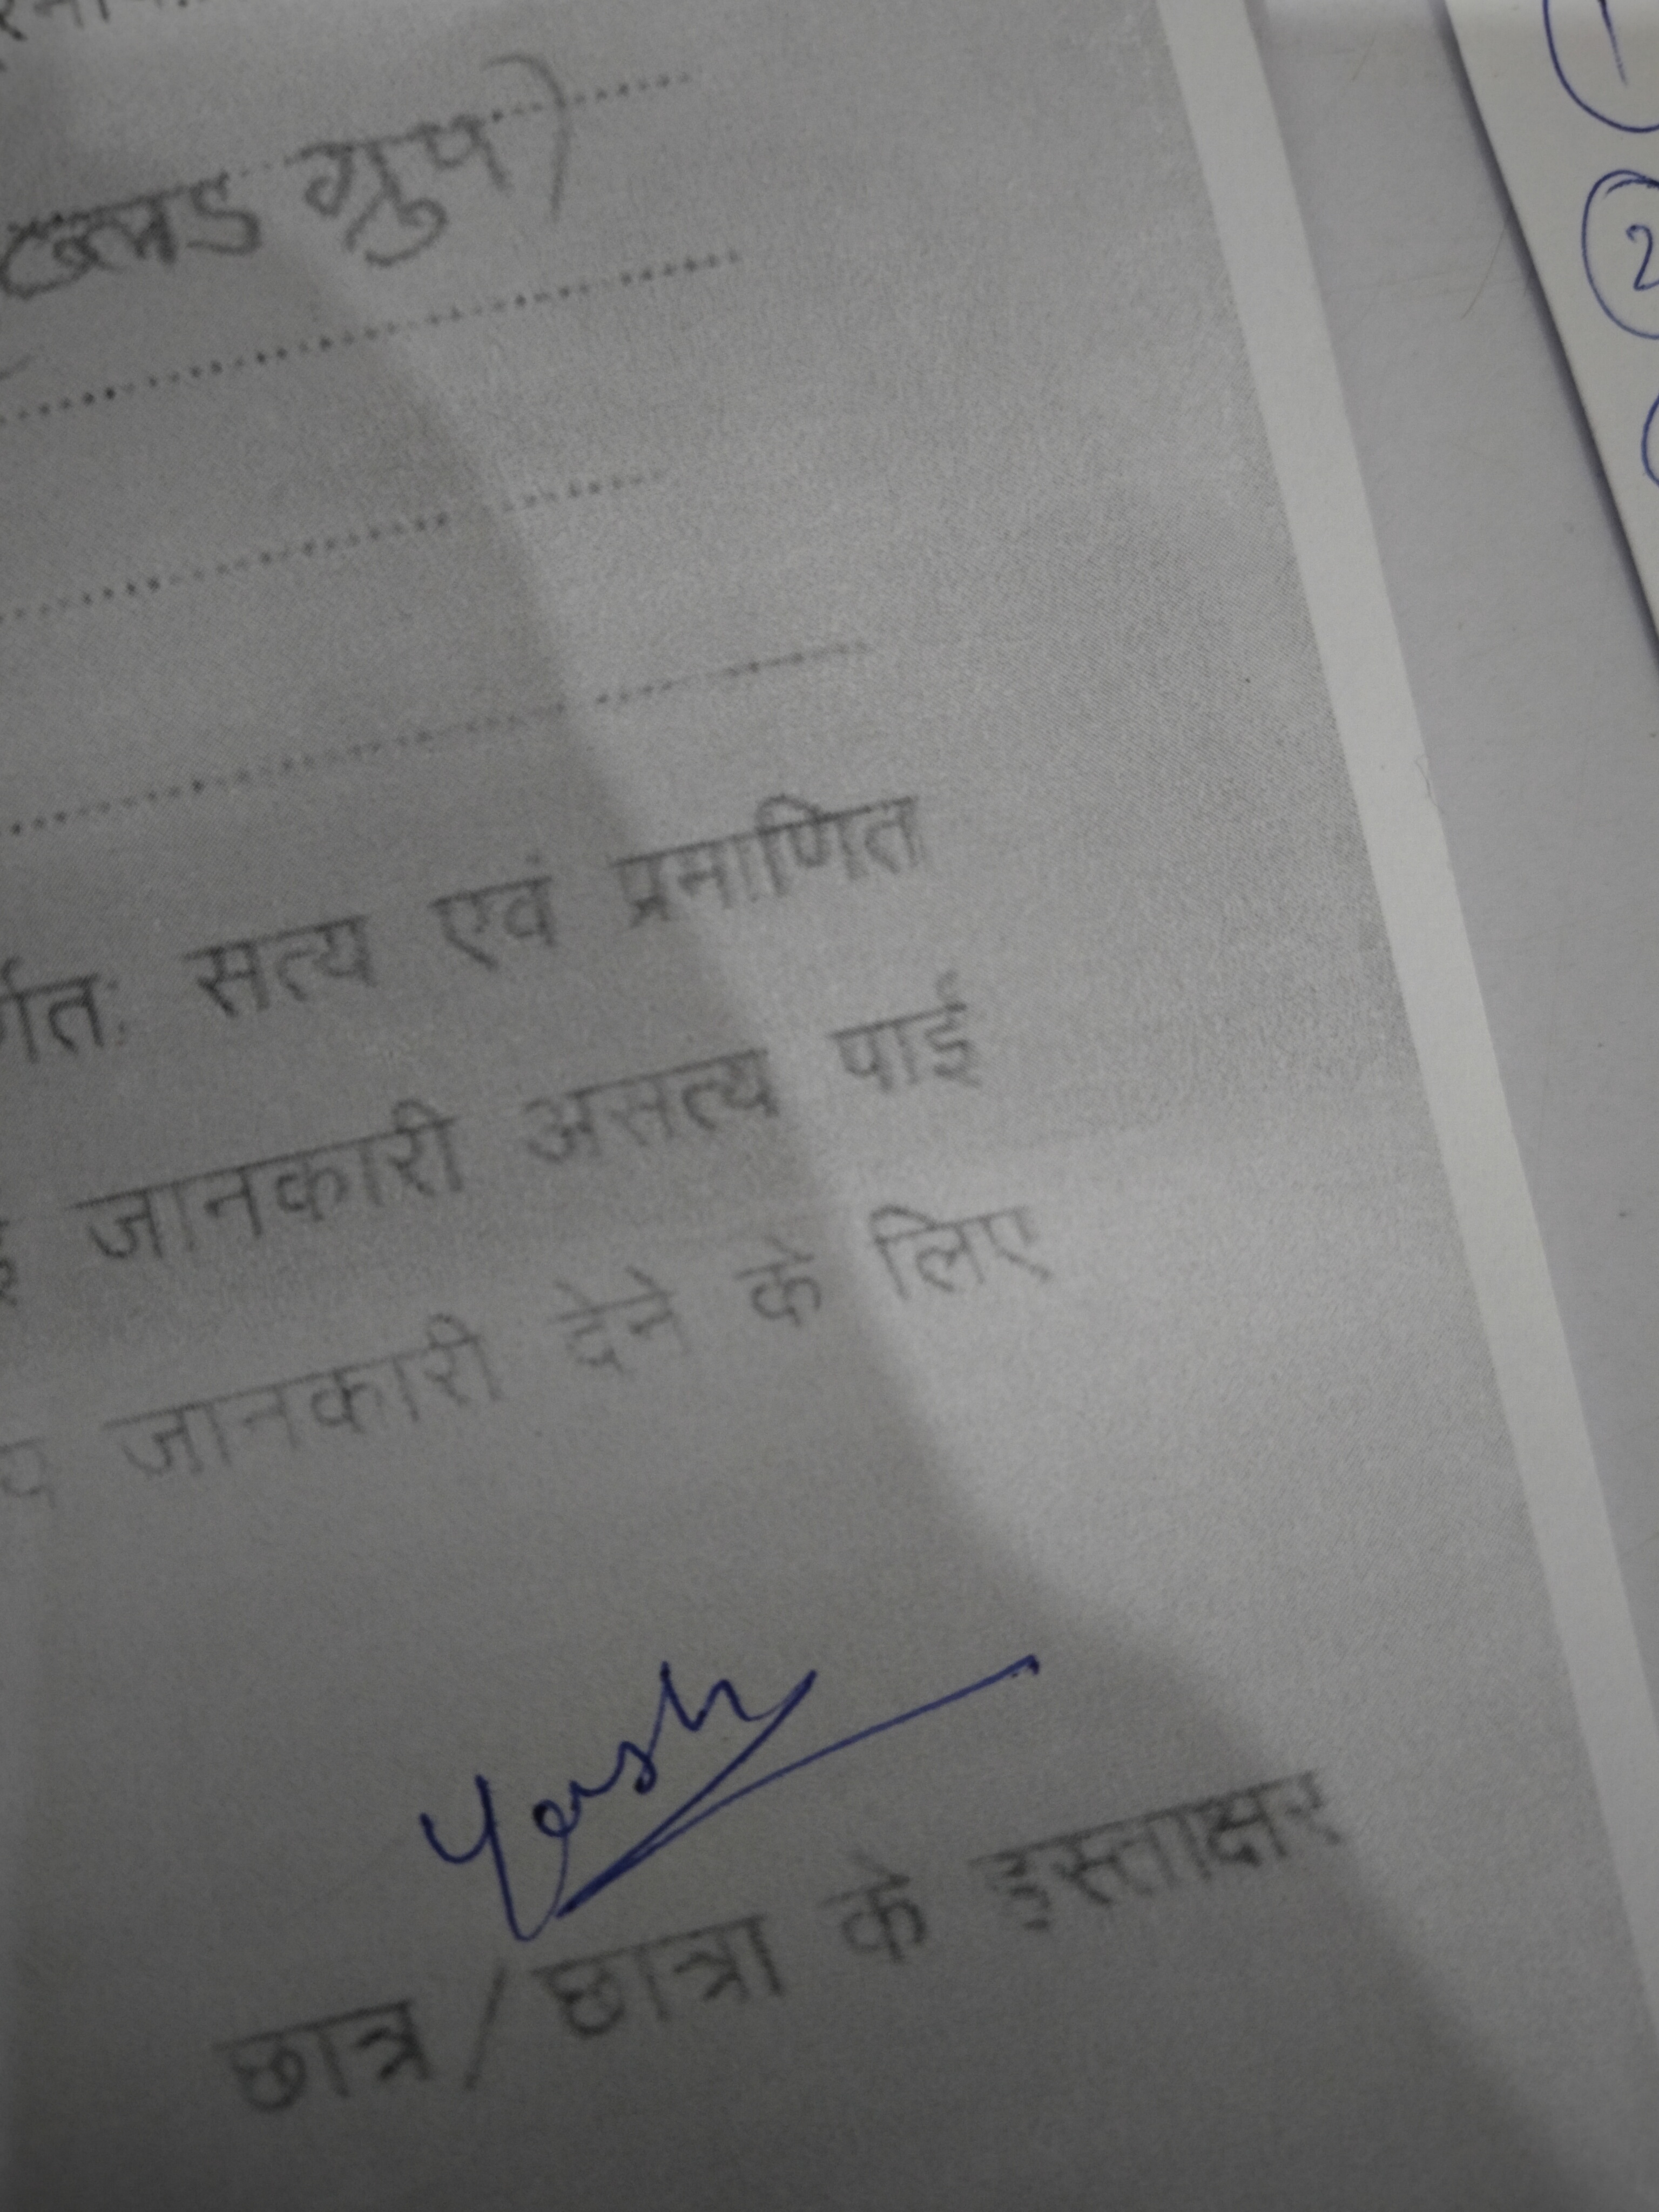 ब्लड ग्रुप)
सत्य एवं प्रमाणित
जानकारी असत्य पाई
जानकारी देने के लिए
Yash
छात्र / छात्रा के हस्ताक्षर
1
2